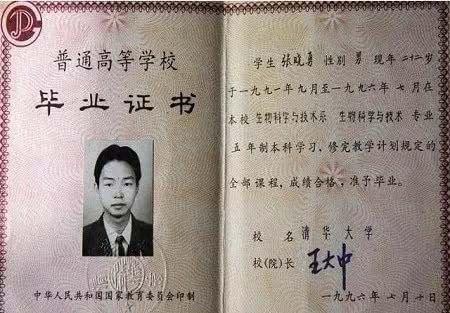 普通高等学校
毕业证书
中华人民共和国国家教育委员会印制
学生 张晓勇 性别 男 现年二十二岁
于一九九一年九月至一九九六年七月在
本校 生物科学与技术系 生物科学与技术 专业
五年制本科学习、修完教学计划规定的
全部课程，成绩合格，准予毕业。
校 名 清华大学
校(院)长 王大中
一九九六年七月十日